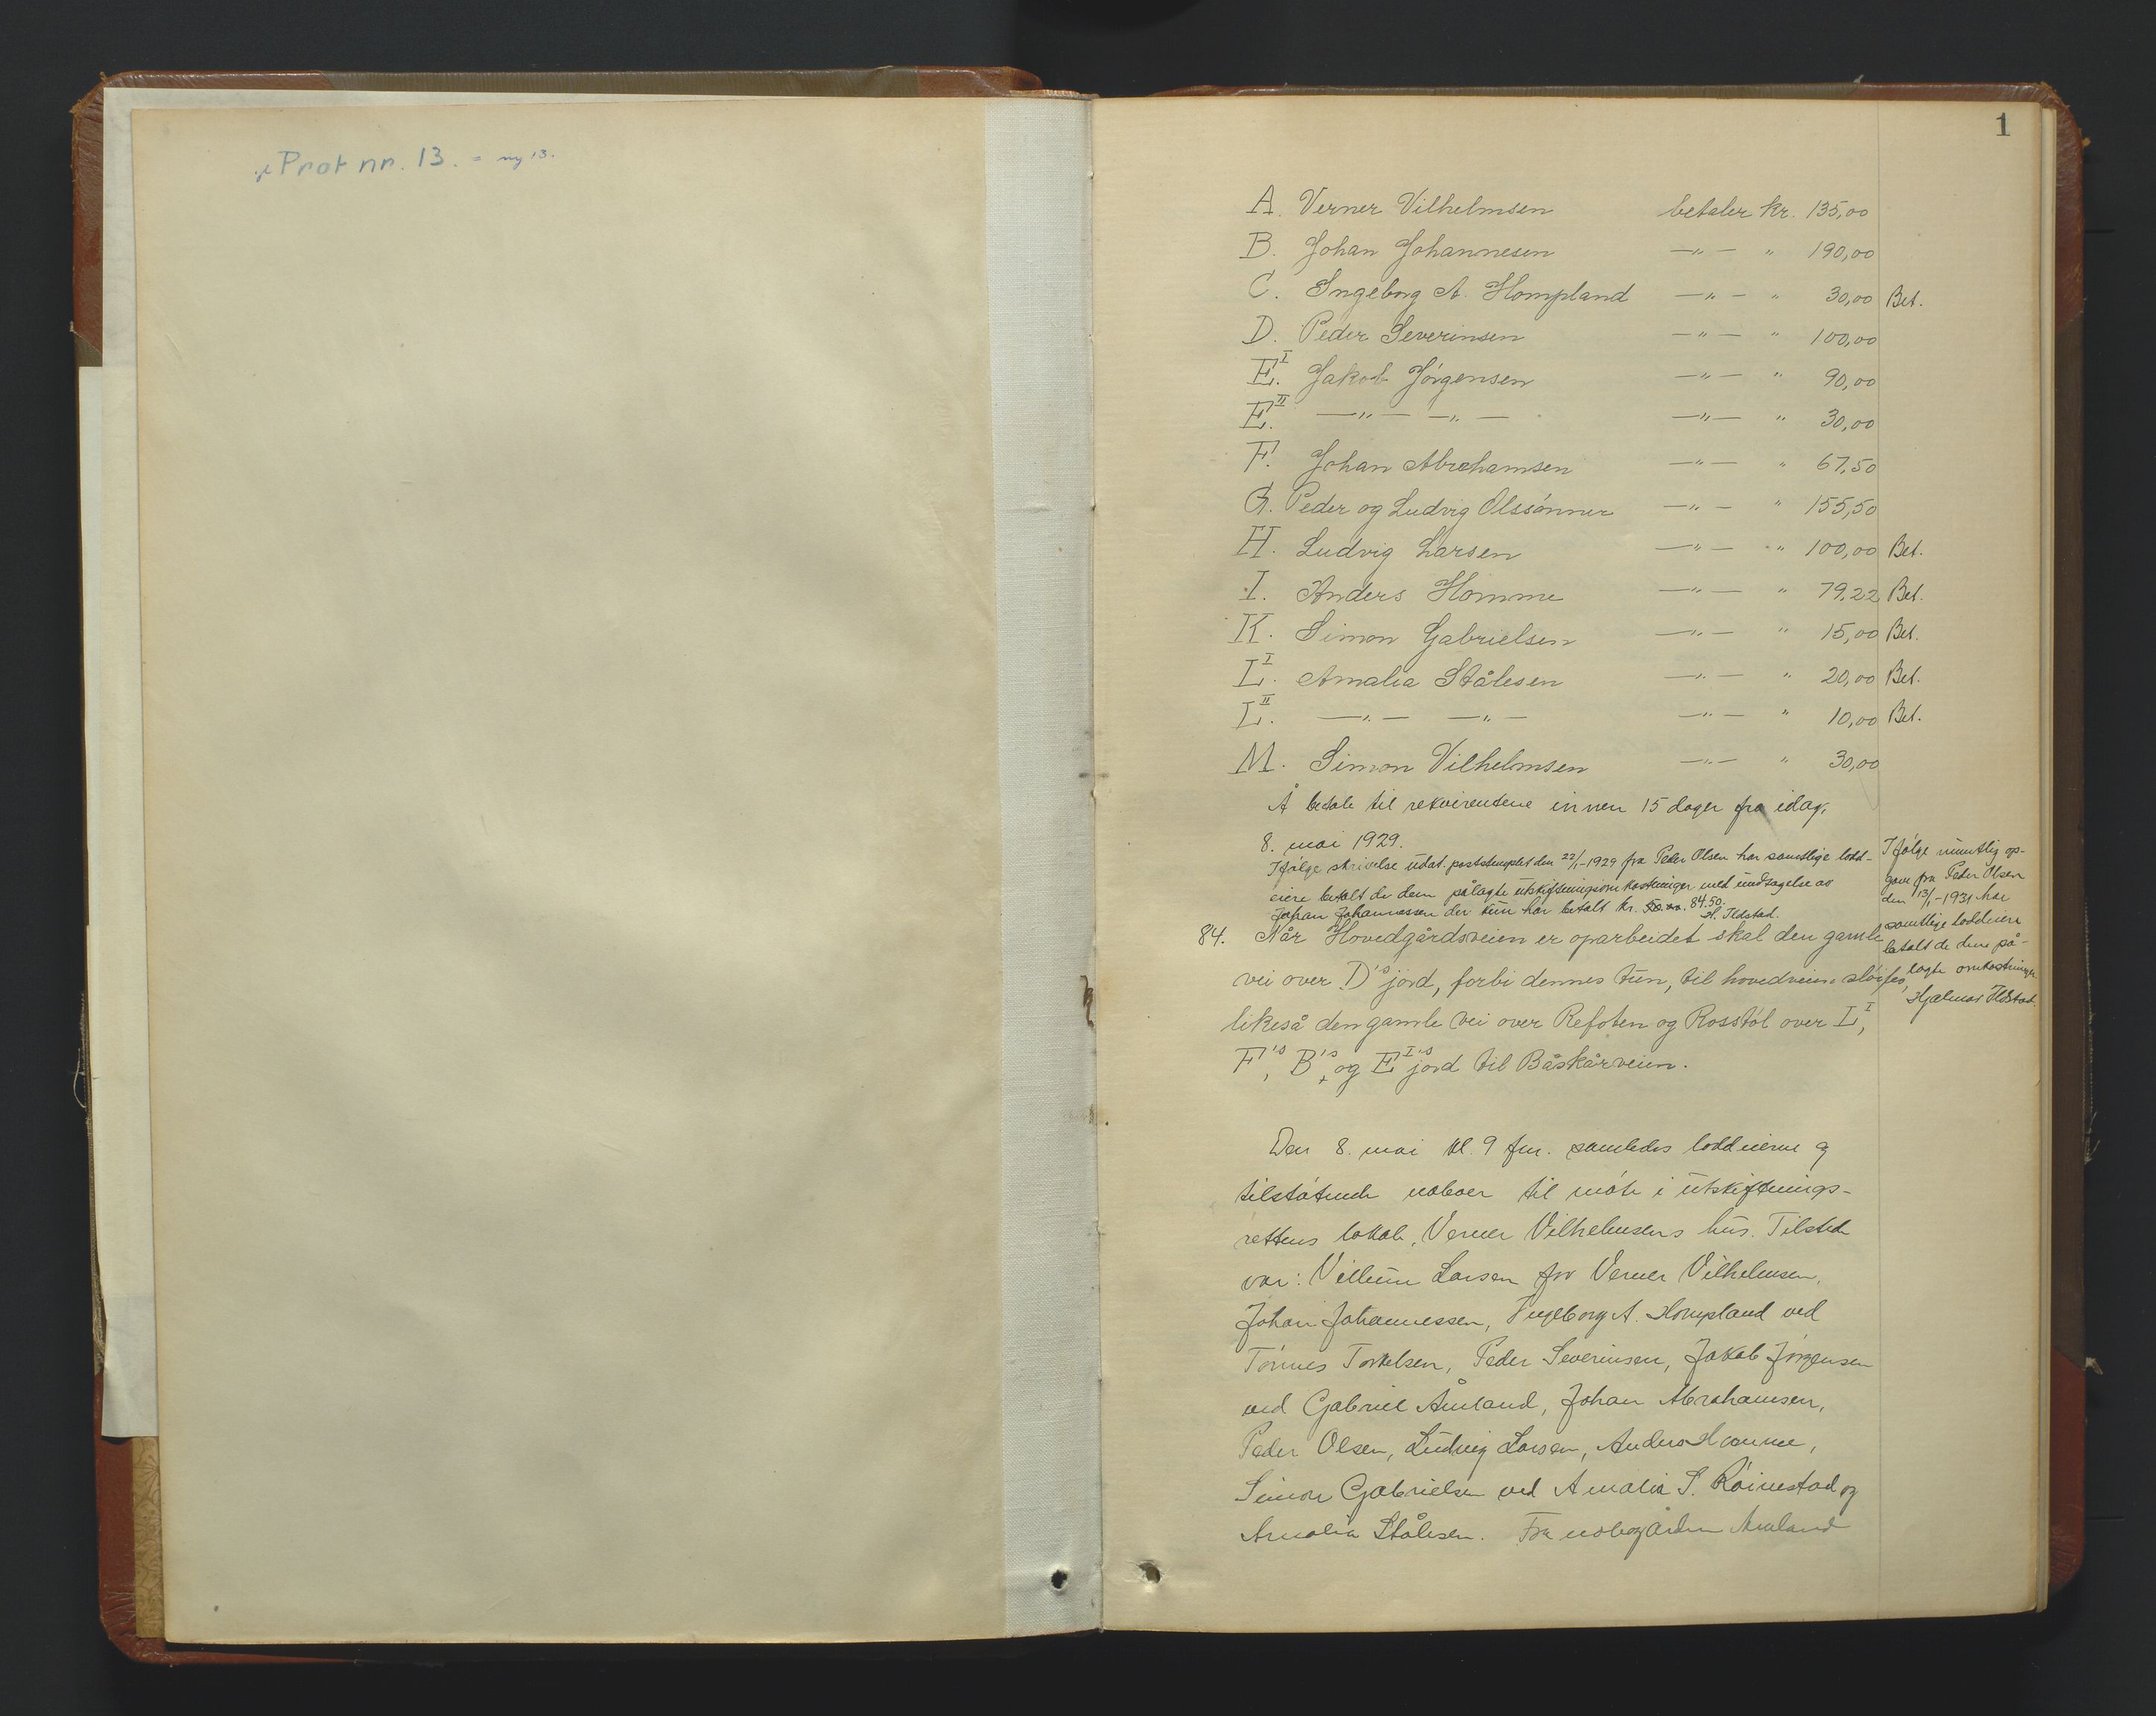 Prot nr. 13. = ny 13.
1
A. Verner Vilhelmsen betaler kr. 135,00
B. Johan Johannesen —"— " 190,00
C. Ingeborg A. Hompland —"— " 30,00 Bet.
D. Peder Severinsen —"— " 100,00
E.I Jakob Jörgensen —"— " 90,00
E.II —"— —"— —"— " 30,00
F. Johan Abrahamsen —"— " 67,50
G. Peder og Ludvig Olssönner —"— " 155,50
H. Ludvig Larsen —"— " 100,00 Bet.
I. Anders Homme —"— " 79,22 Bet.
K. Simon Gabrielsen —"— " 15,00 Bet.
L.I Amalia Stålesen —"— " 20,00 Bet.
L.II —"— —"— —"— " 10,00 Bet.
M. Simon Vilhelmsen —"— " 30,00
Å betale til rekvirentene innen 15 dager fra idag,
8. mai 1929.
Ifölge skrivelse udat. poststemplet den 22/1-1929 fra Peder Olsen har samtlige lodd-
eiere betalt de dem pålagte utskiftningsomkostninger med undtagelse av
Johan Johannessen der kun har betalt kr. 84.50.
H. Ildstad.
Ifölge muntlig op-
gave fra Peder Olsen
den 13/1-1931 har
samtlige loddeiere
betalt de dem på-
lagte omkostninger.
Hjalmar Ildstad.
84. Når Hovedgårdsveien er oparbeidet skal den gamle
vei over D's jord, forbi dennes tun, til hovedveien slöifes,
likeså den gamle vei over Refoten og Rosstöl over L I,
F's, B's, og E I's jord til Båskårveien.
Den 8. mai kl. 9 fm. samledes loddeierne og
tilstötende naboer til möte i utskiftnings-
rettens lokale, Verner Vilhelmsens hus. Tilstede
var: Villum Larsen for Verner Vilhelmsen,
Johan Johannessen, Ingeborg A. Hompland ved
Tönnes Torkelsen, Peder Severinsen, Jakob Jörgensen
ved Gabriel Åmland, Johan Abrahamsen,
Peder Olsen, Ludvig Larsen, Anders Homme,
Simon Gabrielsen ved Amalia S. Röinestad og
Amalia Stålesen. Fra nabogården Åmland